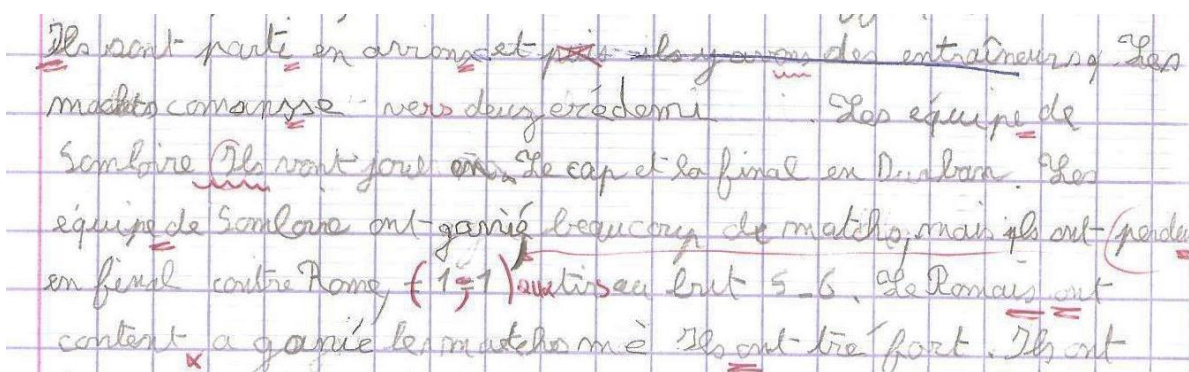 Ils sont parti en arrons et puis ils y avons des entraîneurs. Les
matchs comansse vers deuzerédemi. Les équipe de
Somloire Ils vont joué en Le cap et la final en Durban. Les
équipe de Somloire ont ganié beaucoup de matchs, mais ils ont perdu
en final contre Rome, (1-1) aux tirs au but 5-6. Le Romais ont
content a ganié les matchs mè Ils ont tré fort. Ils ont